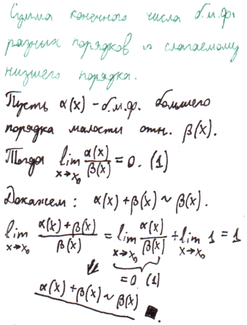 Сумма конечного числа б.м.ф.
разных порядков ~ слагаемому
низшего порядка.
Пусть α(x) - б.м.ф. большего
порядка малости отн. β(x).
Тогда lim x→x₀ α(x)/β(x) = 0. (1)
Докажем: α(x)+β(x) ~ β(x).
lim x→x₀ (α(x)+β(x))/β(x) = lim x→x₀ α(x)/β(x) + lim x→x₀ 1 = 1
⇓ =0 (1)
α(x)+β(x) ~ β(x) ■.